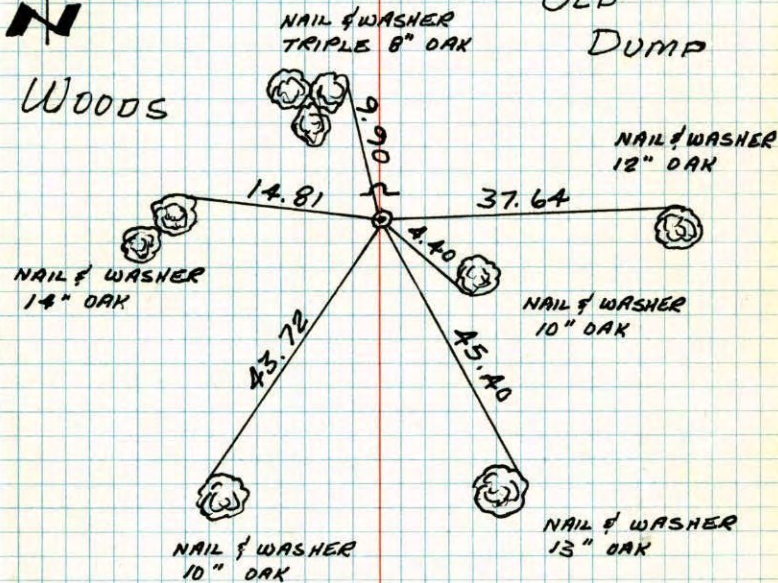 N
OLD
DUMP
WOODS
NAIL & WASHER
TRIPLE 8" OAK
9.90
NAIL & WASHER
12" OAK
14.81
37.64
4.40
NAIL & WASHER
14" OAK
NAIL & WASHER
10" OAK
43.72
45.40
NAIL & WASHER
10" OAK
NAIL & WASHER
13" OAK